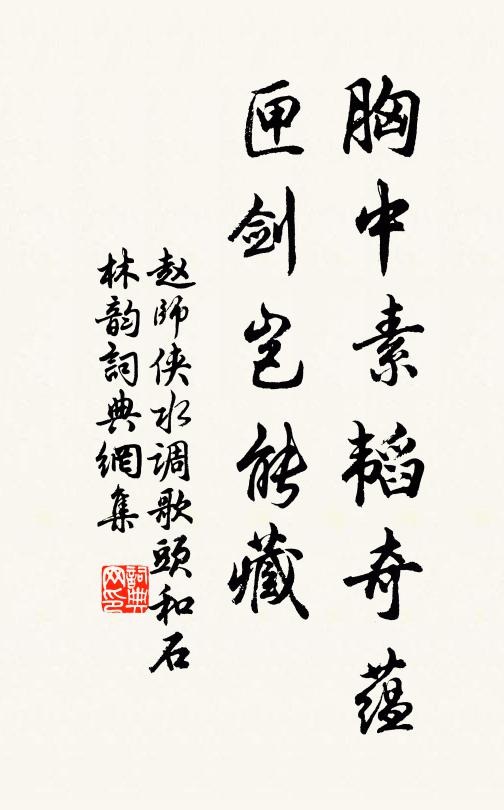 胸中素韬奇蕴
匣剑岂能藏
赵师侠水调歌头和石
林韵词典網集
詞典
网印